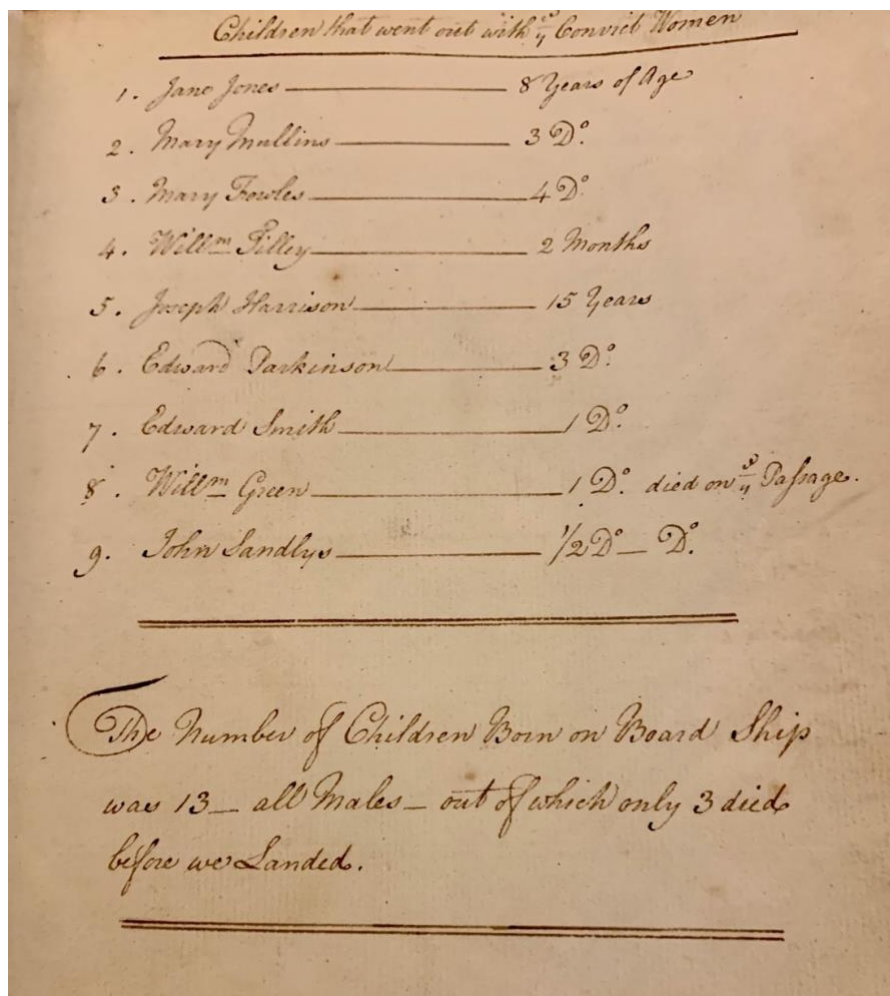 Children that went out with yᵉ Convict Women
1. Jane Jones — 8 Years of Age
2. Mary Mullins — 3 Dᵒ.
3. Mary Fowles — 4 Dᵒ.
4. Willᵐ Tilley — 2 Months
5. Joseph Harrison — 15 Years
6. Edward Parkinson — 3 Dᵒ.
7. Edward Smith — 1 Dᵒ.
8. Willᵐ Green — 1 Dᵒ. died on yᵉ Paſsage.
9. John Sandlys — 1/2 Dᵒ — Dᵒ.
The Number of Children Born on Board Ship
was 13 — all Males — out of which only 3 died
before we Landed.